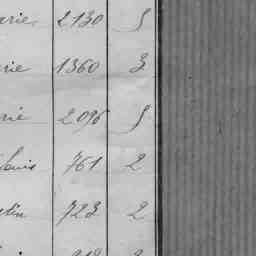 arie 2130 5
rie 1360 3
rie 2096 5
Louis 761 2
723 2